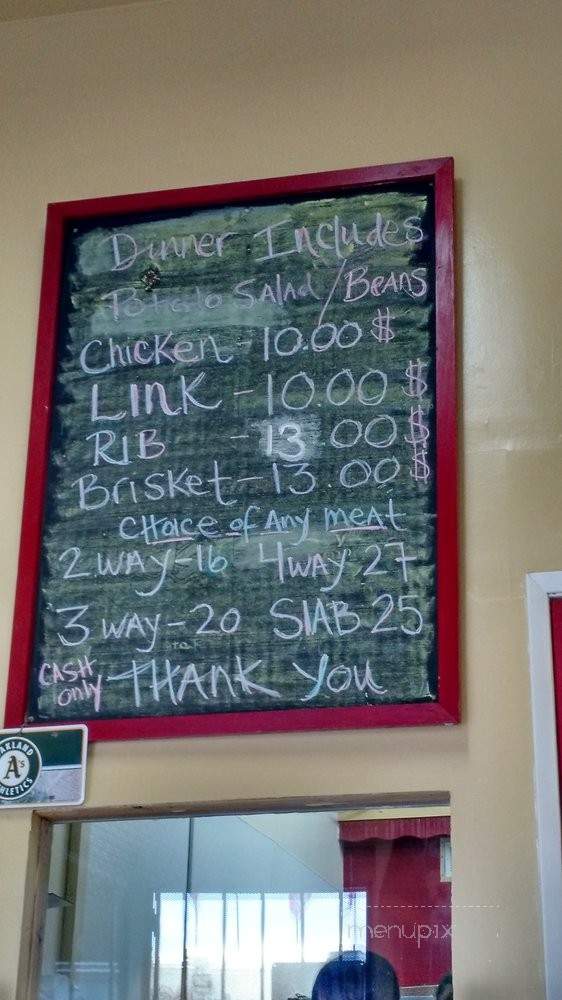 Dinner Includes
Potato Salad/Beans
Chicken - 10.00 $
LINK - 10.00 $
RIB - 13.00 $
Brisket - 13.00 $
CHoice of Any meat
2 way - 16 4 way 27
3 way - 20 SlAB 25
CASH only THANK You
OAKLAND
A's
ATHLETICS
menupix